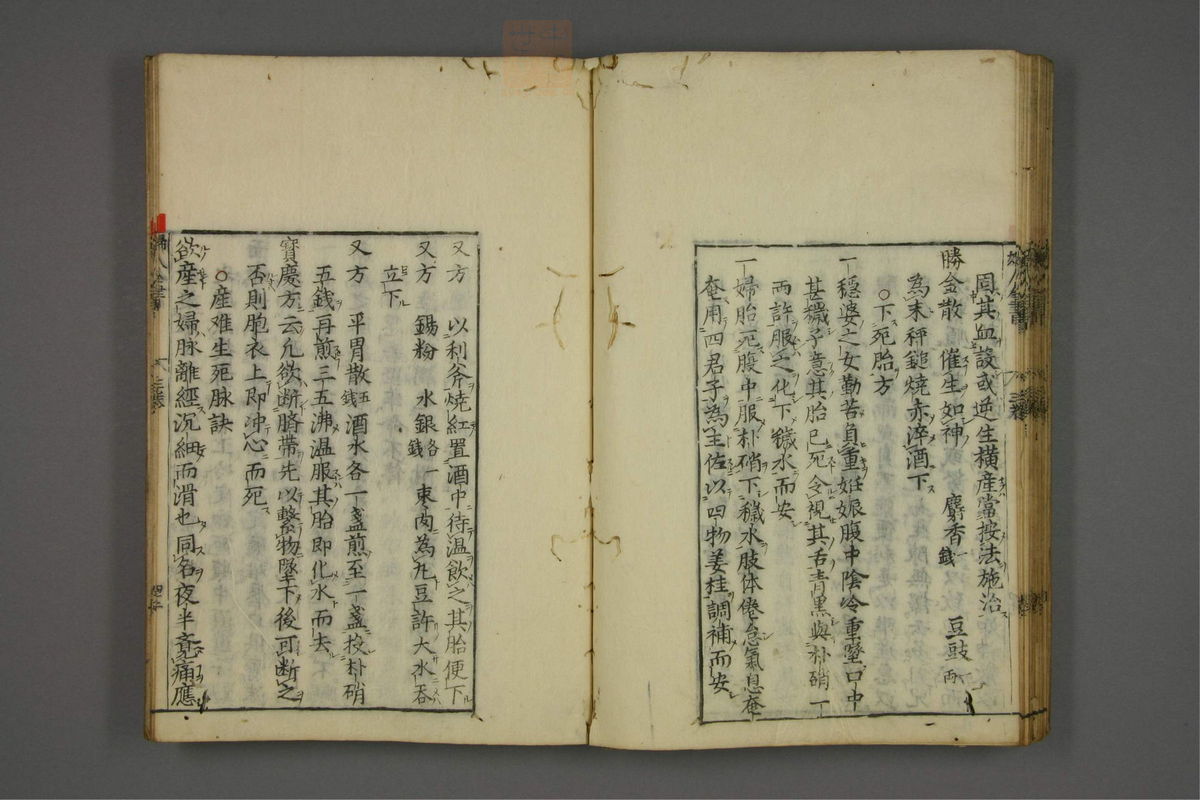 固其血設或逆生横産當按法施治
勝金散 催生如神 麝香一錢 豆豉一兩
為末秤鎚燒赤淬酒下
○下死胎方
一穩婆之女勤苦負重妊娠腹中陰冷重墜口中
甚穢予意其胎已死令視其舌青黑與朴硝一
兩許服之化下穢水而安
一婦胎死腹中服朴硝下穢水肢体倦怠氣息奄
奄用四君子為主佐以四物姜桂調補而安
又方 以利斧燒紅置酒中待温飲之其胎便下
又方 錫粉 水銀各一錢 棗肉為丸豆許大水吞
立下
又方 平胃散五錢 酒水各一盞煎至一盞投朴硝
五錢再煎三五沸温服其胎即化水而去
寶慶方云凢欲断臍帶先以繫物墜下後可断之
否則胞衣上即冲心而死
○産难生死脉訣
欲産之婦脉離經沉細而滑也同名夜半㫁痛應